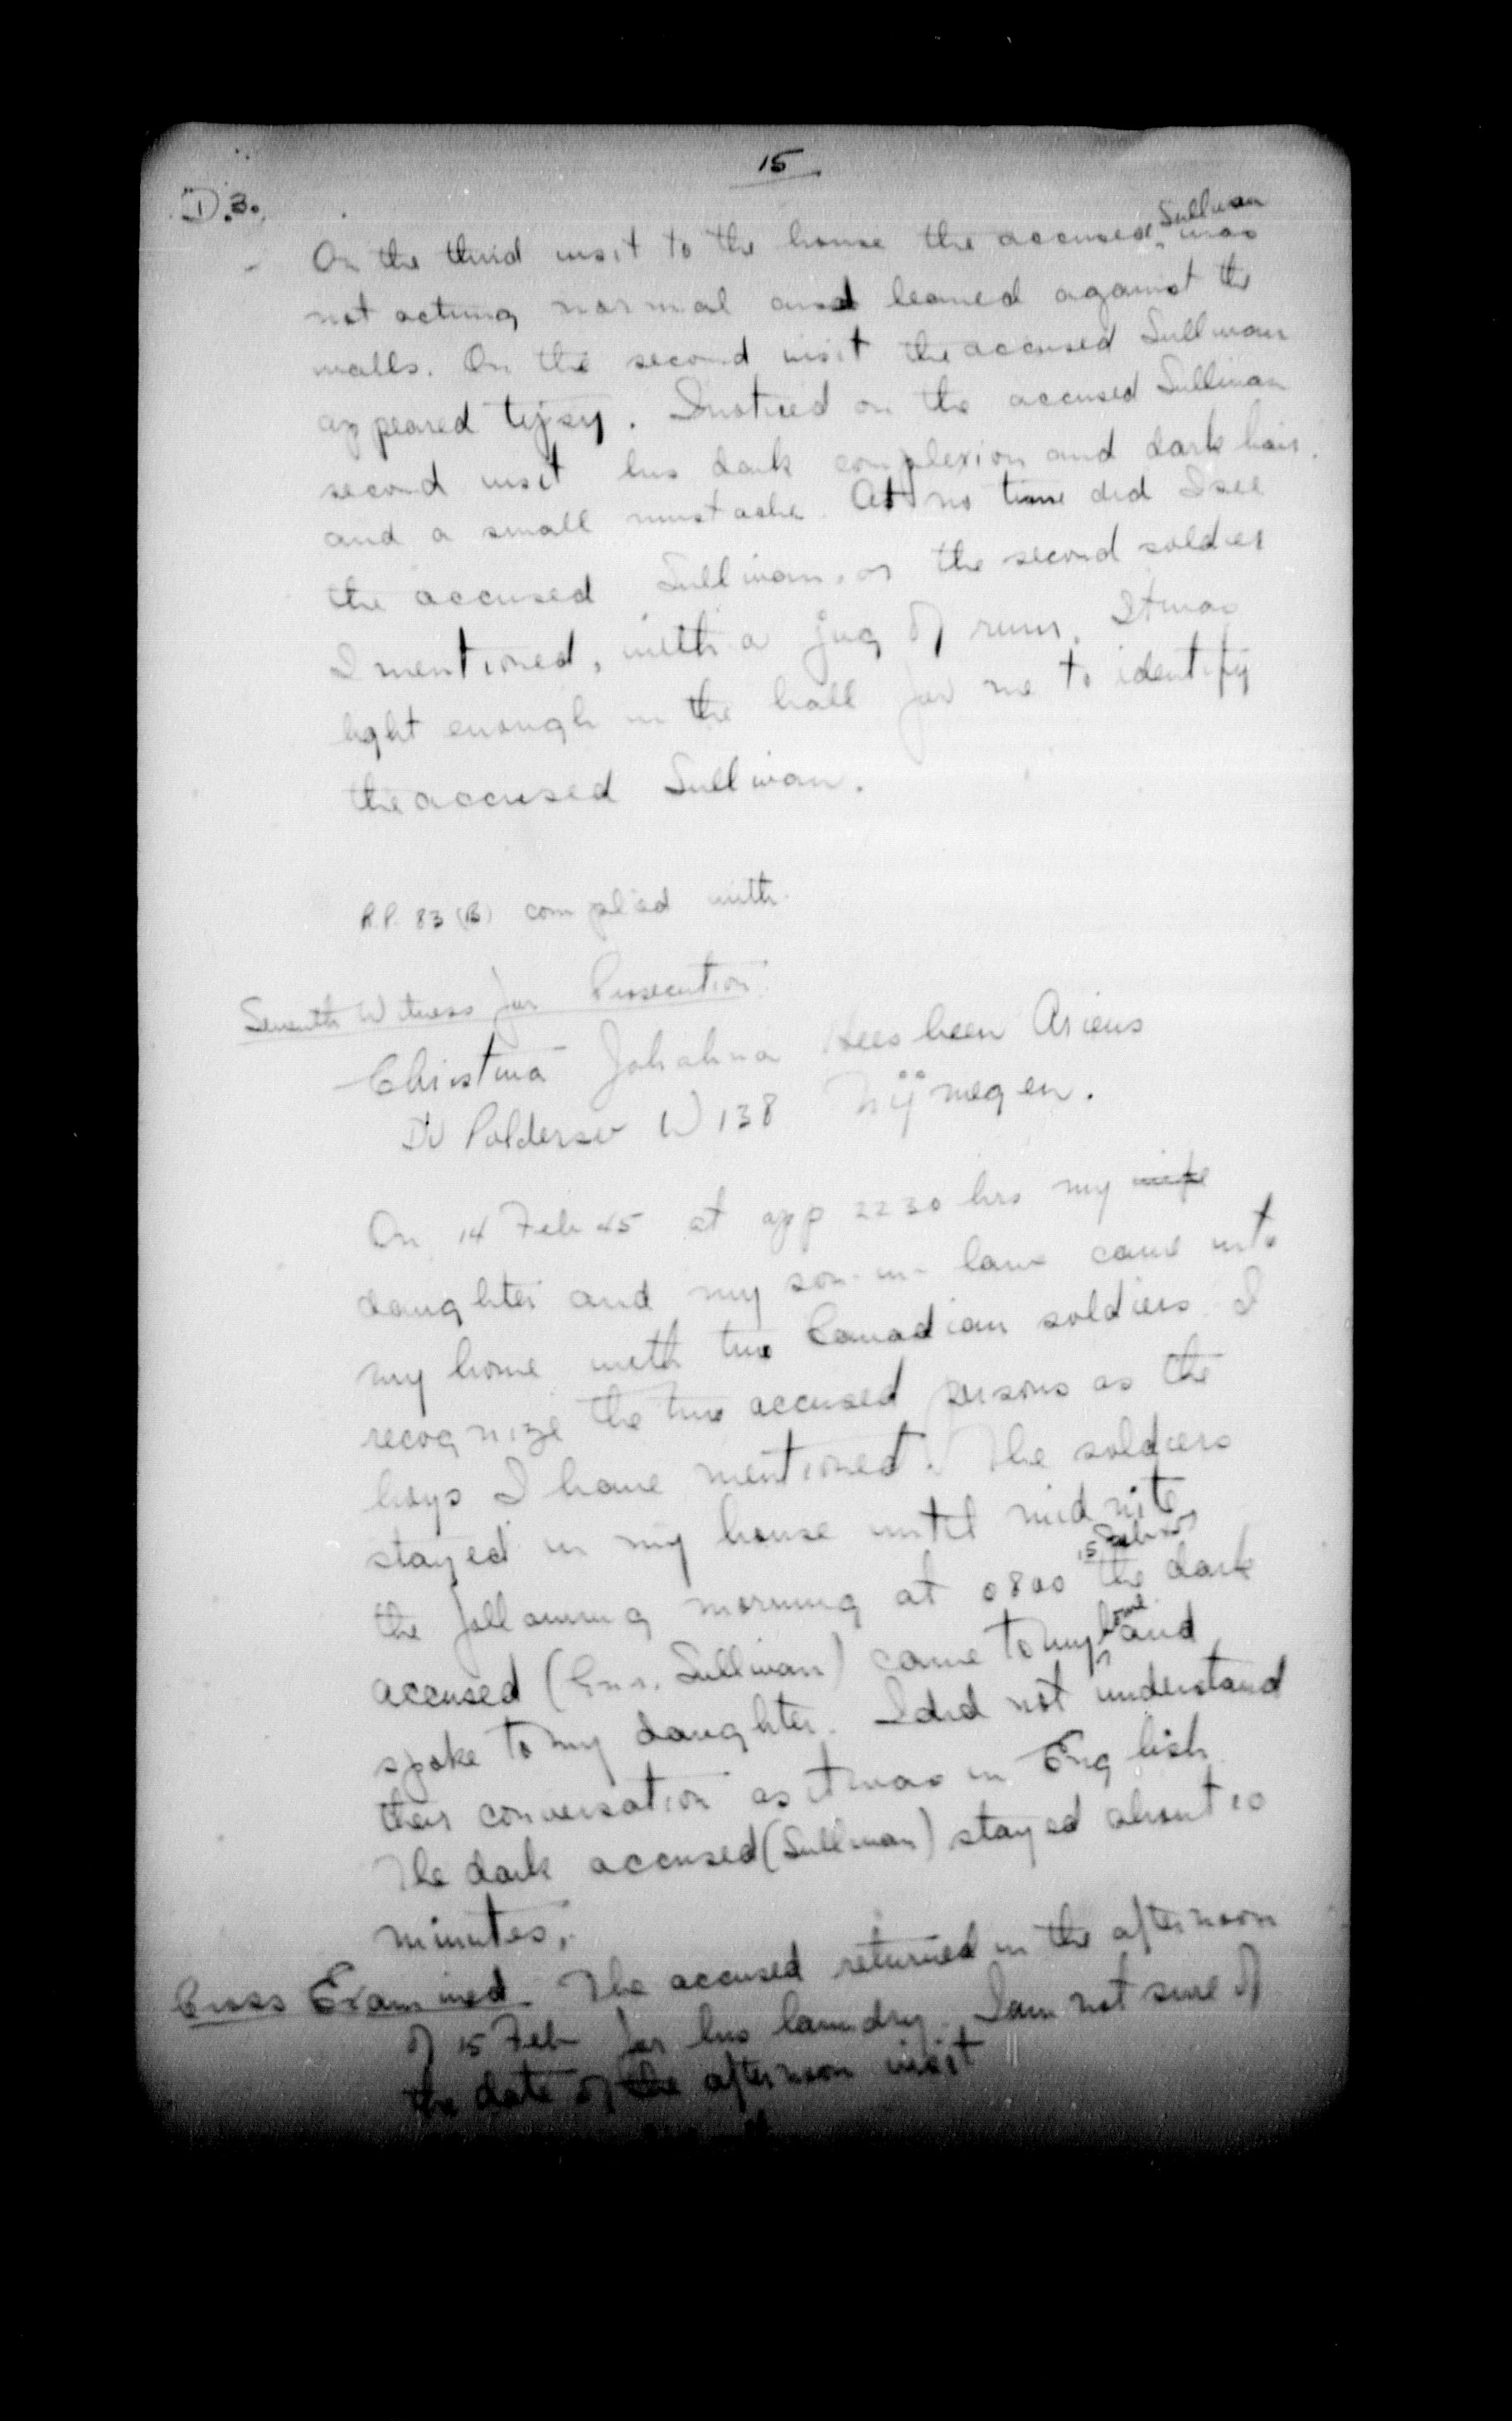 15
D.3.
- On the third visit to the house the accused Sullivan was
not acting normal and leaned against the
walls. On the second visit the accused Sullivan
appeared tipsy. I noticed on the accused Sullivan
second visit his dark complexion and dark hair.
and a small mustache. At no time did I see
the accused Sullivan, or the second soldier
I mentioned, with a jug of rum. It was
light enough in the hall for me to identify
the accused Sullivan.
R.P. 83 (B) complied with.
Seventh Witness for Prosecution.
Christina Johahna Heesbeen Ariens
W 138 Nijmegen.
On 14 Feb 45 at app 2230 hrs my wife
daughter and my son-in-law came into
my home with two Canadian soldiers. I
recognize the two accused persons as the
boys I have mentioned. The soldiers
stayed in my house until mid nite
the following morning at 0800 15 Feb 45 the dark
accused (Gnr. Sullivan) came to my home and
spoke to my daughter. I did not understand
their conversation as it was in English
The dark accused (Sullivan) stayed about 10
minutes.
Cross Examined The accused returned in the afternoon
of 15 Feb for his laundry. I am not sure of
the date of the afternoon visit